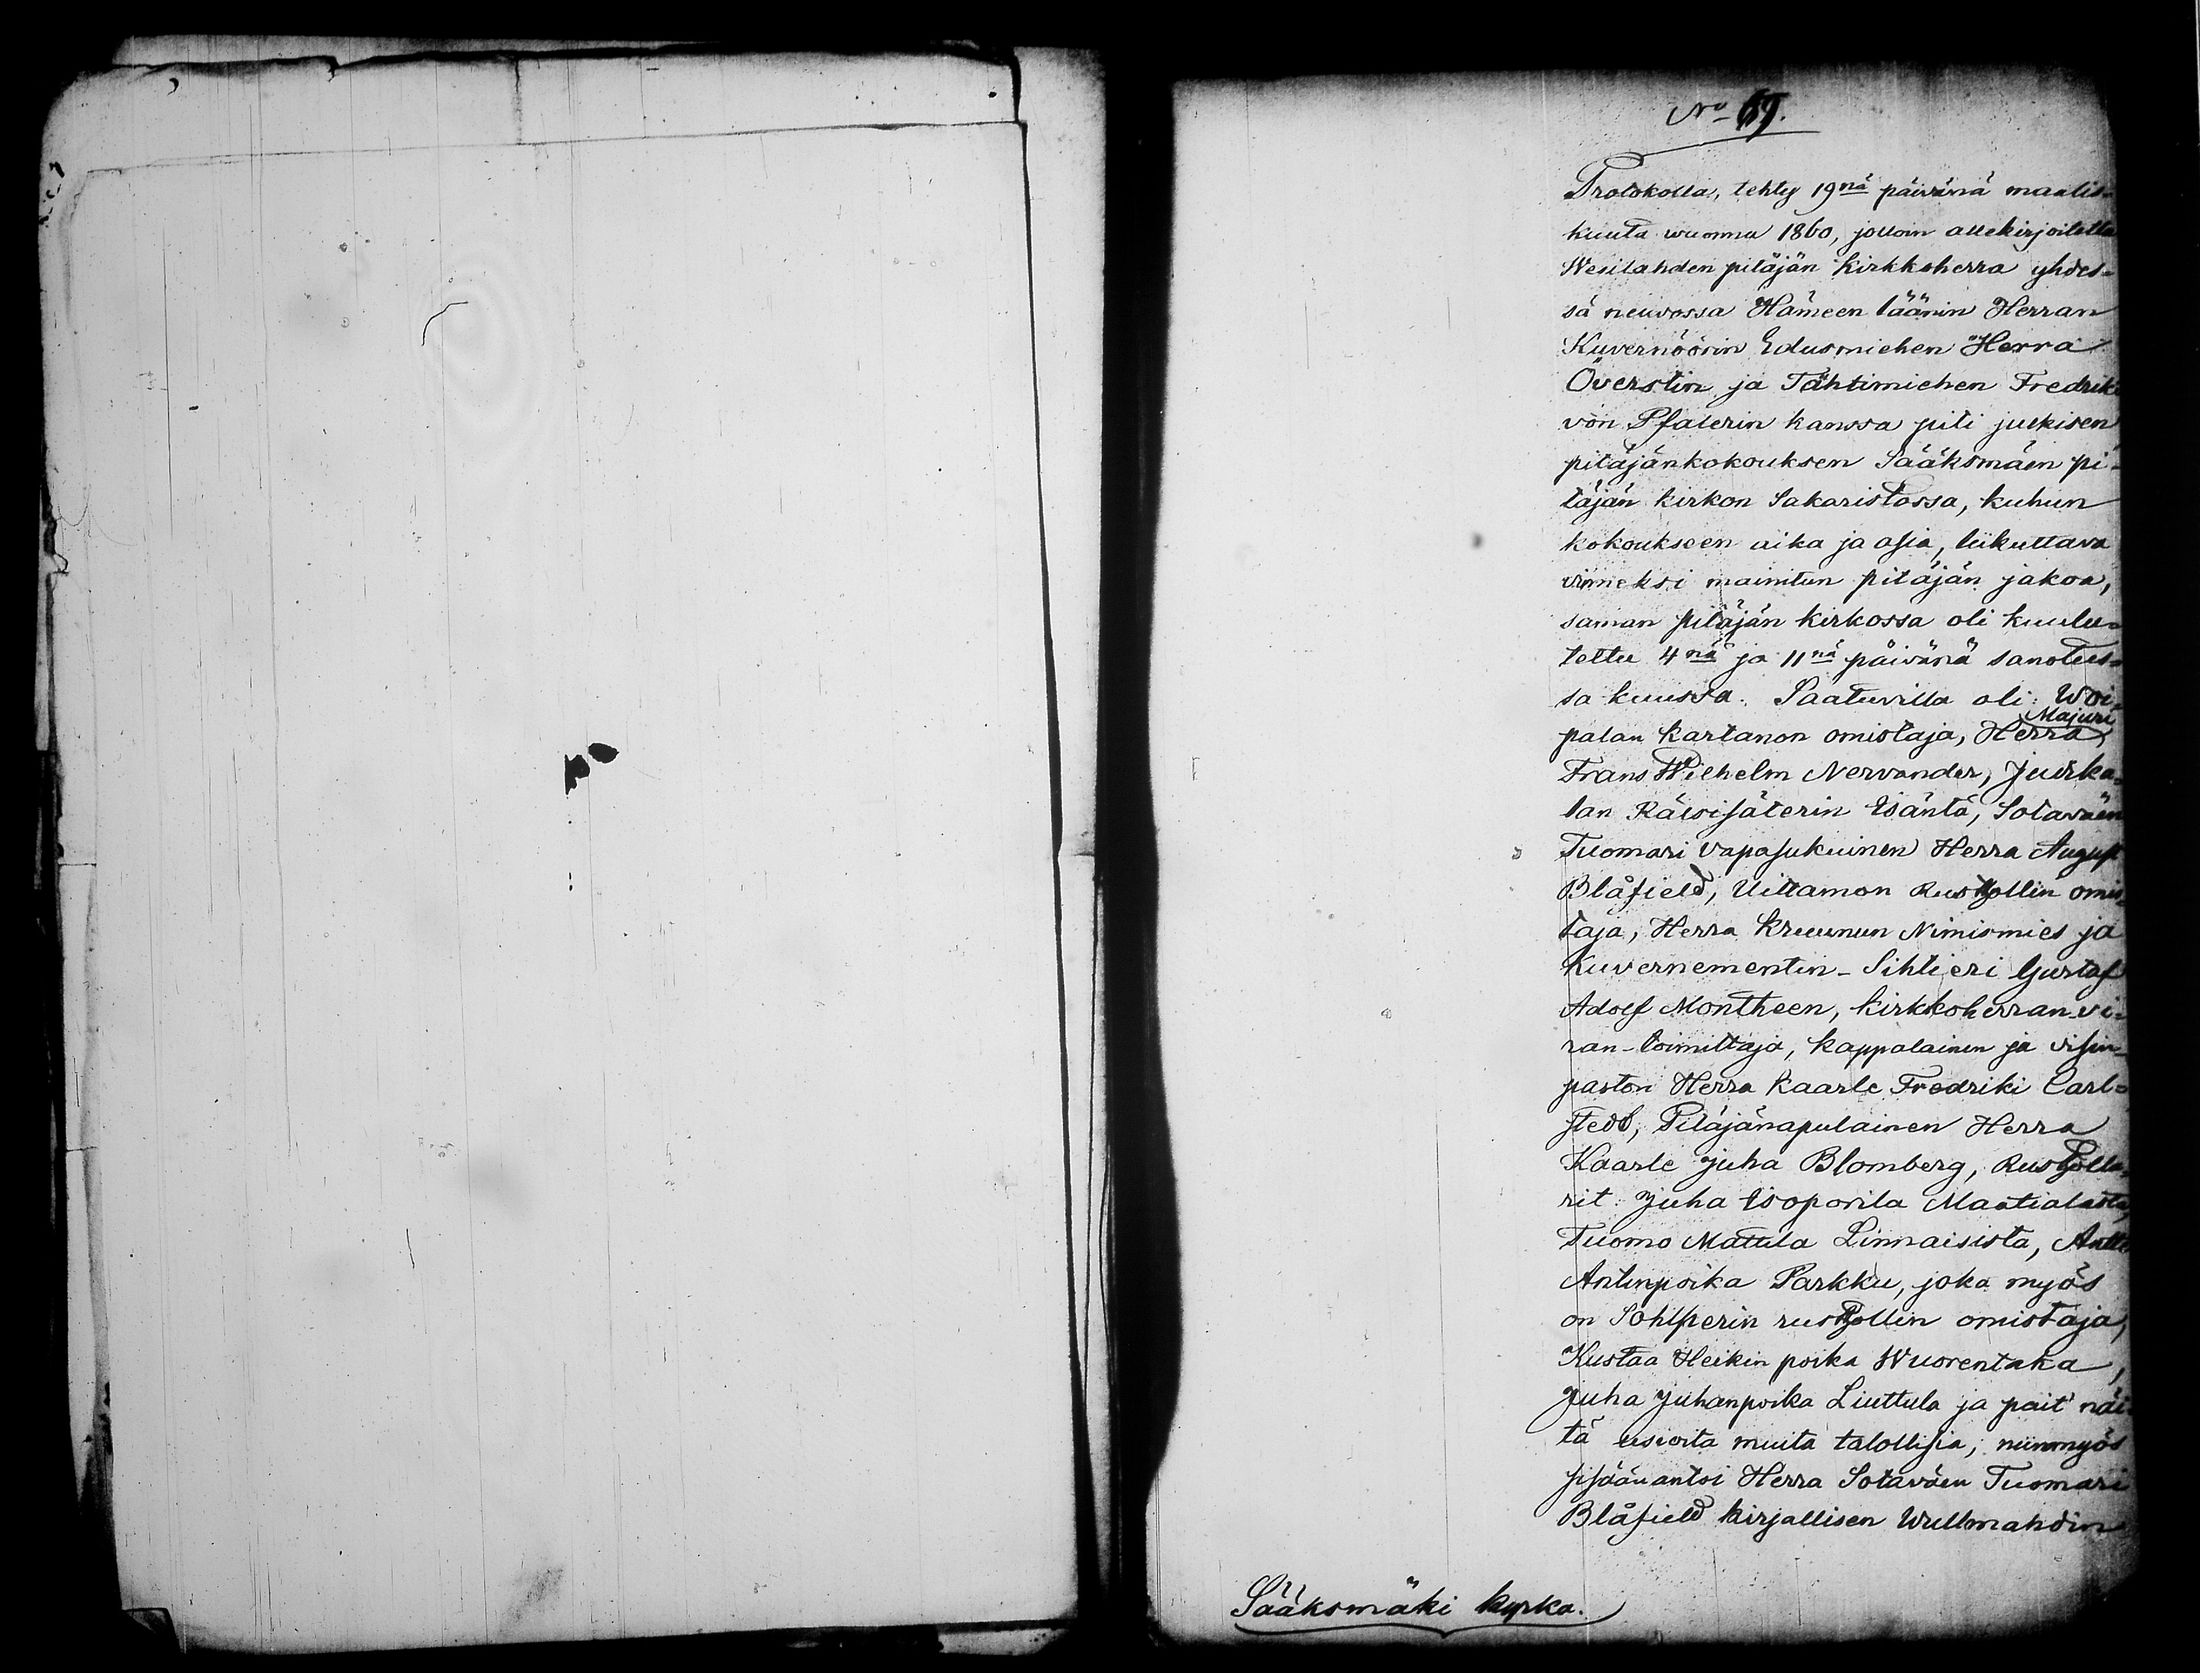 No 69.
Protokolla, tehty 19nä päivänä maalis-
kuuta wuonna 1860, jolloin allekirjoitettu
Wesilahden pitäjän kirkkoherra yhdes-
sä neuvossa Hämeen läänin Herran
Kuvernöörin Edusmiehen Herra
Överstin ja Tähtimiehen Fredrik
von Pfalerin kanssa piti julkisen
pitäjänkokouksen Sääksmäen pi-
täjän kirkon Sakaristossa, kuhun
kokoukseen aika ja asia, liikuttava
viimeksi mainitun pitäjän jakoa,
saman pitäjän kirkossa oli kuulu-
tettu 4nä ja 11nä päivänä sanotus-
sa kuussa. Saatuvilla oli: Woi-
palan kartanon omistaja, Herra Majuri
Frans Wilhelm Nervander, Jutika-
lan Rälsisäterin Isäntä, Sotaväen
Tuomari vapasukuinen Herra August
Blåfield, Uittamon Rusthollin omis-
taja, Herra kruunun Nimismies ja
Kuvernementin-Sihtieri Gustaf
Adolf Montheen, kirkkoherran-vi-
ran-toimittaja, kappalainen ja visin-
paston Herra Kaarle Fredriki Carl-
stedt, Pitäjänapulainen Herra
Kaarle Juha Blomberg, Rustholla-
rit: Juha Isoporila Maatialasta,
Tuomo Mattila Linnaisista, Antti
Antinpoika Parkku, joka myös
on Sohlperin rusthollin omistaja,
Kustaa Heikin poika Wuorentaka,
Juha Juhanpoika Liuttula ja pait näi-
tä usioita muita talollisia; niinmyös
sisäänantoi Herra Sotaväen Tuomari
Blåfield kirjallisen Wullmahdin
Sääksmäki kyrka.